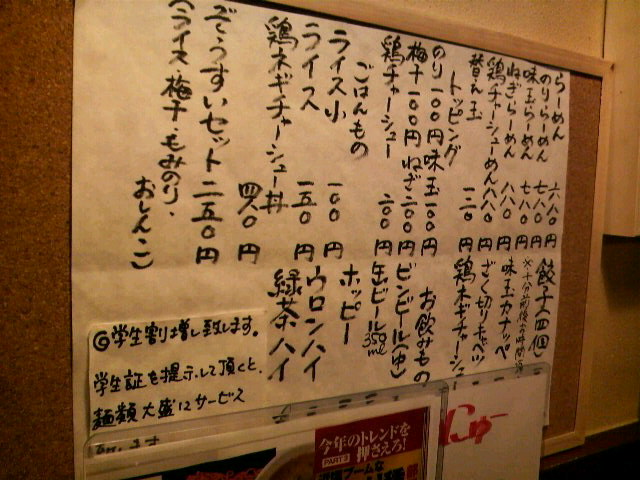 らーめん 六八〇円
のりらーめん 七八〇円
味玉らーめん 七八〇円
ねぎらーめん 八八〇円
鶏チャーシューめん 八八〇円
替え玉 一二〇円
トッピング
のり 一〇〇円 味玉 一〇〇円
梅干 一〇〇円 ねぎ 二〇〇円
鶏チャーシュー 二〇〇円
ごはんもの
ライス小 一〇〇円
ライス 一五〇円
鶏ネギチャーシュー丼 四八〇円
ぞうすいセット 二五〇円
(ライス・梅干・もみのり・
おしんこ)
餃子(四個)
味玉カナッペ
ざく切りキャベツ
鶏ネギチャーシュー
お飲みもの
ビンビール(中)
缶ビール 350ml
ホッピー
ウロンハイ
緑茶ハイ
◎学生割増し致します。
学生証を提示して頂くと、
麺類大盛にサービス
致します
今年のトレンドを
押さえろ!
PART2